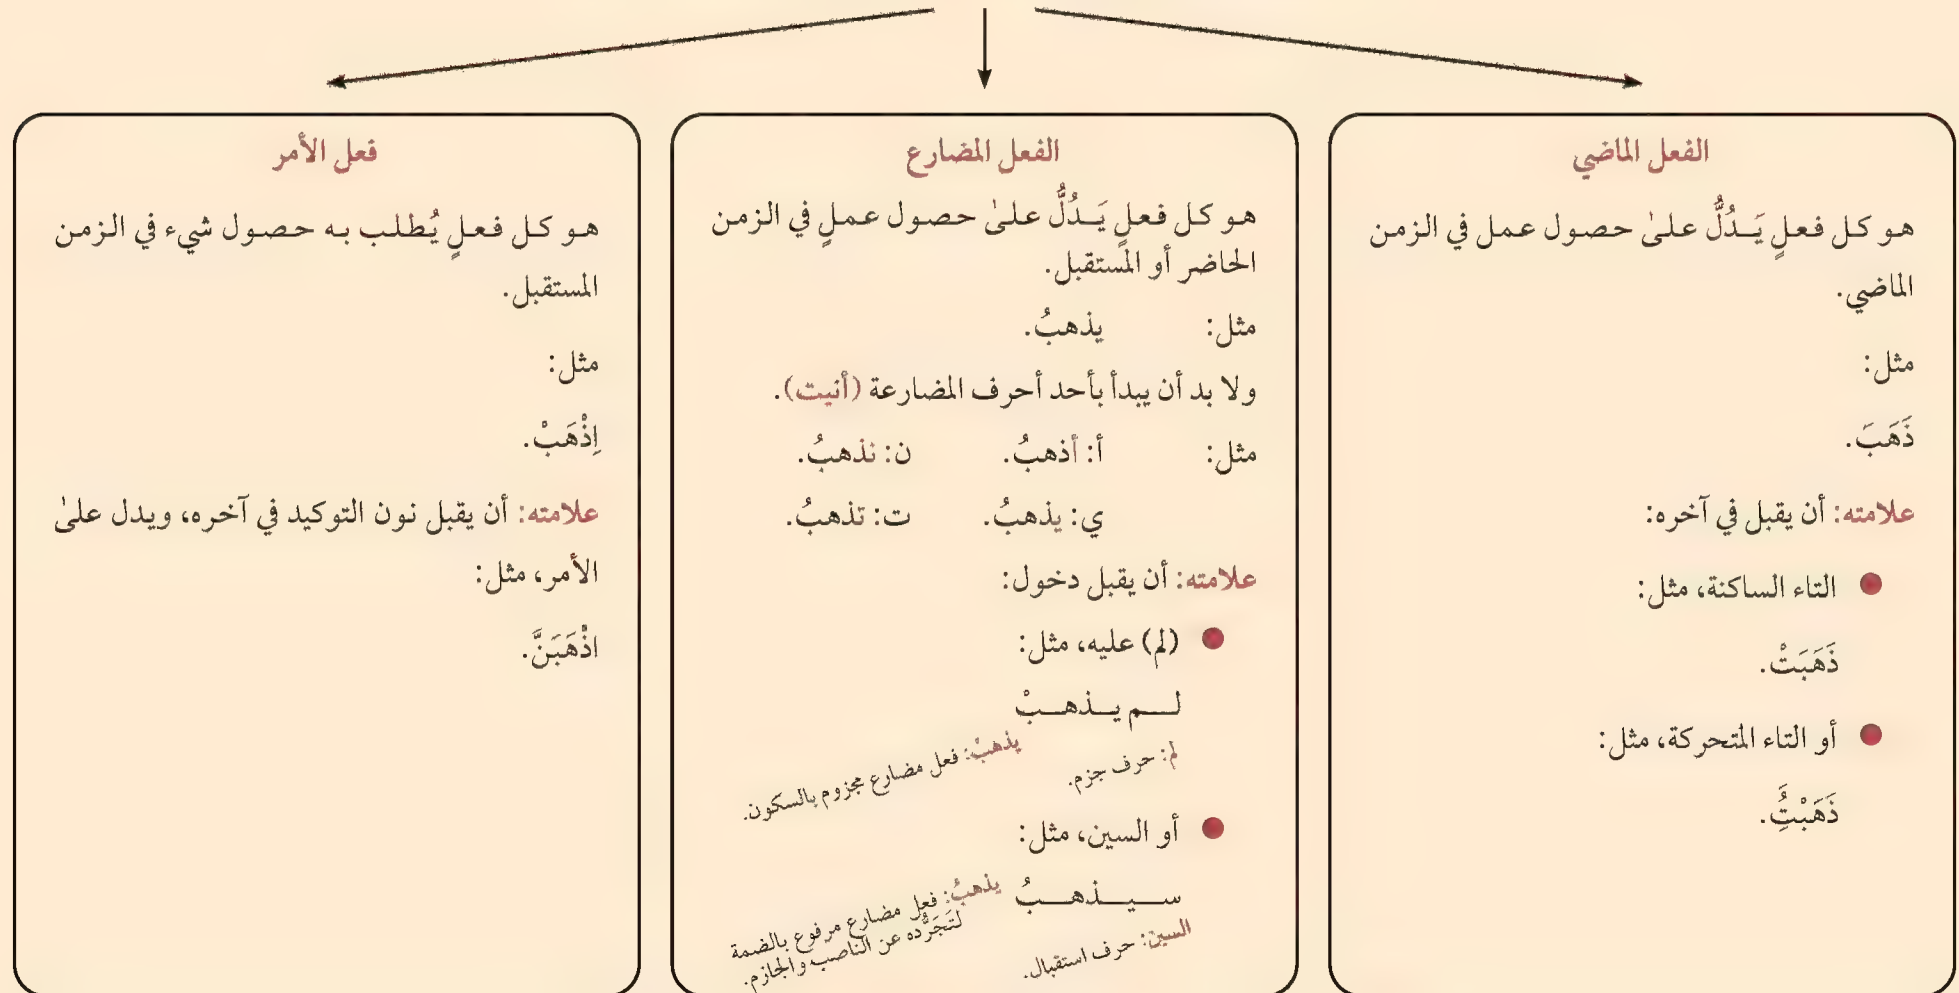 الفعل الماضي
هو كل فعلٍ يَـدُلُّ علىٰ حصول عمل في الزمن
الماضي.
مثل:
ذَهَبَ.
علامته: أن يقبل في آخره:
التاء الساكنة، مثل:
ذَهَبَتْ.
أو التاء المتحركة، مثل:
ذَهَبْتَُِ.
الفعل المضارع
هو كل فعلٍ يَـدُلُّ علىٰ حصول عملٍ في الزمن
الحاضر أو المستقبل.
مثل: يذهبُ.
ولا بد أن يبدأ بأحد أحرف المضارعة (أنيت).
مثل: أ: أذهبُ. ن: نذهبُ.
ي: يذهبُ. ت: تذهبُ.
علامته: أن يقبل دخول:
(لم) عليه، مثل:
لـــم يــذهــبْ
لم: حرف جزم.
يذهبْ: فعل مضارع مجزوم بالسكون.
أو السين، مثل:
ســيــذهــبُ
السين: حرف استقبال.
يذهبُ: فعل مضارع مرفوع بالضمة
لتَجَرُّده عن الناصب والجازم.
فعل الأمر
هو كل فعلٍ يُطلب به حصول شيء في الزمن
المستقبل.
مثل:
اِذْهَبْ.
علامته: أن يقبل نون التوكيد في آخره، ويدل علىٰ
الأمر، مثل:
اذْهَبَنَّ.